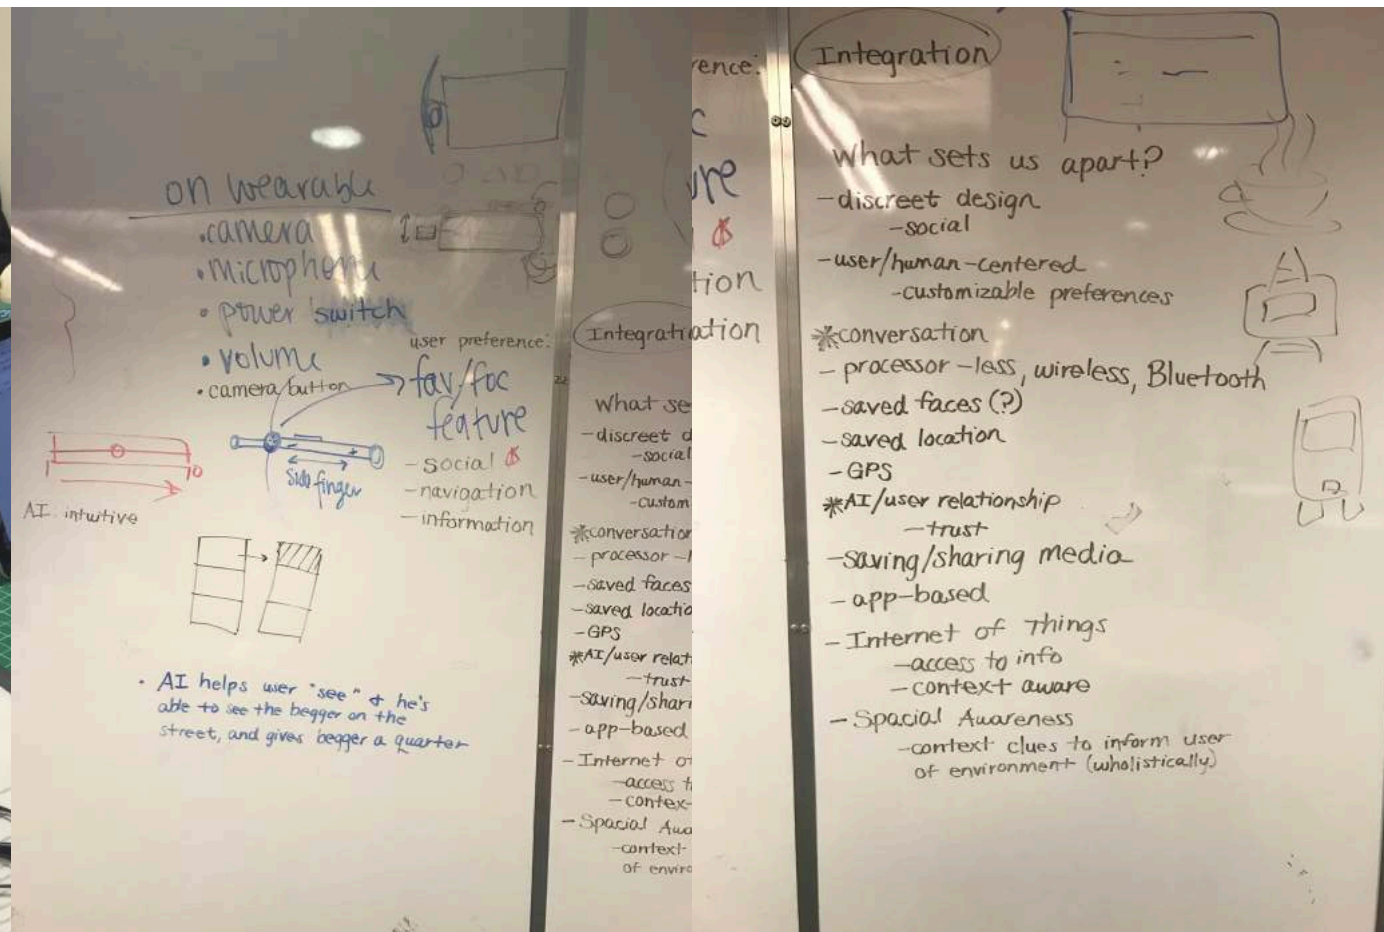 on wearable
•camera
•microphone
• power switch
• volume
• camera/button
user preference:
fav/foc
feature
- social
- navigation
- information
side finger
1
10
AI intuitive
• AI helps user "see" & he's
able to see the begger on the
street, and gives begger a quarter
Integrat
What se
- discreet d
- social
- user/human-
- custom
*conversation
- processor -l
- saved faces
- saved locatio
- GPS
*AI/user relat
- trust
- saving/shari
- app-based
- Internet o
- access t
- contex
- Spacial Awa
- context
of enviro
rence:
c
ure
tion
ation
Integration
What sets us apart?
- discreet design
- social
- user/human-centered
- customizable preferences
*conversation
- processor -less, wireless, Bluetooth
- saved faces (?)
- saved location
- GPS
*AI/user relationship
- trust
- saving/sharing media
- app-based
- Internet of Things
- access to info
- context aware
- Spacial Awareness
- context clues to inform user
of environment (wholistically)